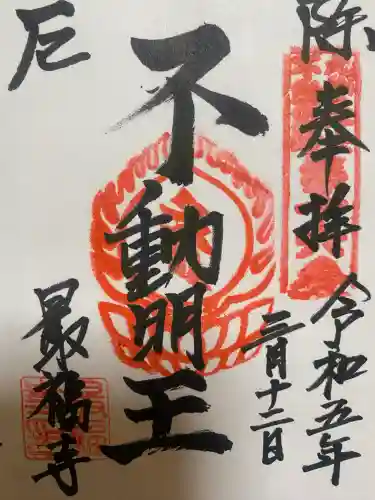 除
厄
奉拝
令和五年
三月十二日
不動明王
最福寺